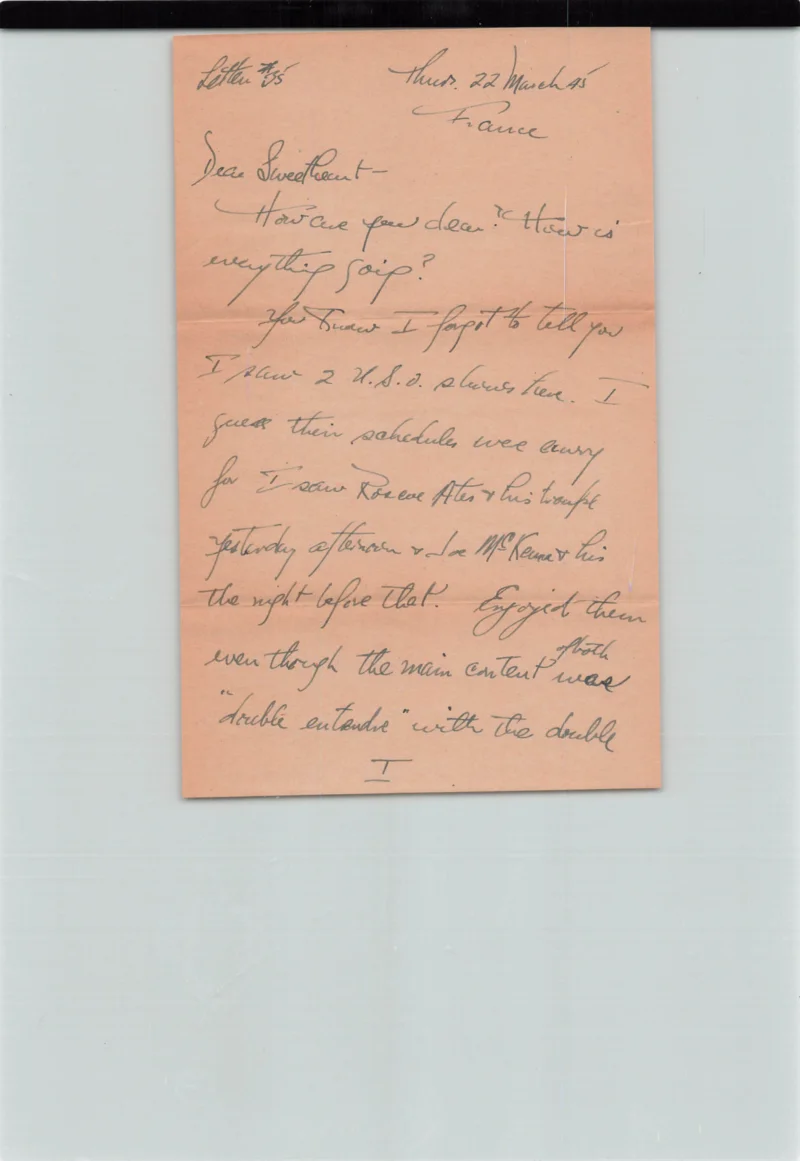 Letter #35 Thurs. 22 March 45
France
Dear Sweetheart-
How are you dear? How is
everything going?
You know I forgot to tell you
I saw 2 U.S.O. shows here. I
guess their schedules were awry
for I saw Roscoe Ates & his troupe
yesterday afternoon & Joe McKenna & his
the night before that. Enjoyed them
even though the main content of both was
"double entendre" with the double
I